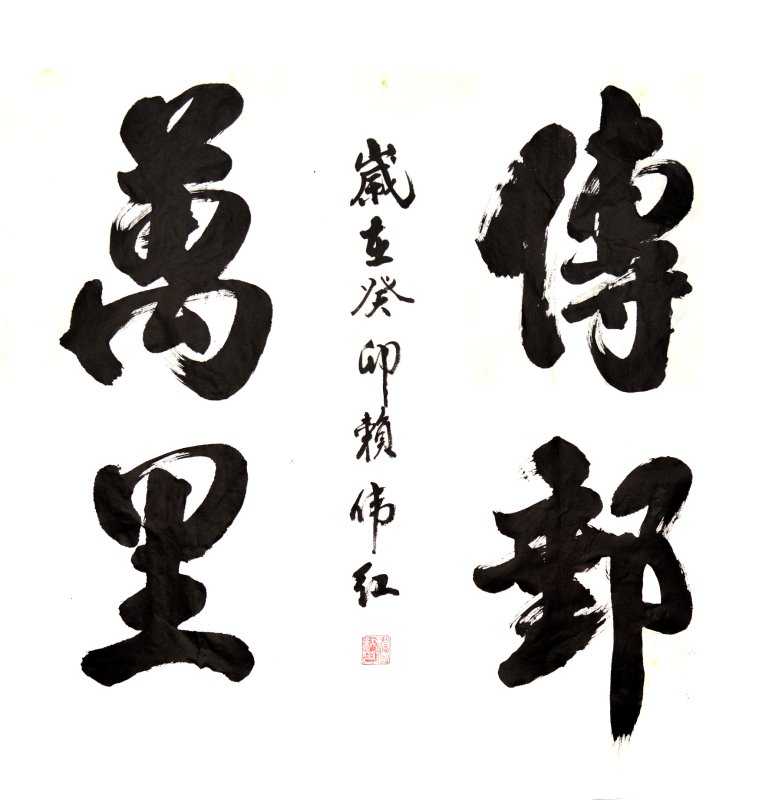 傳郵
萬里
歲在癸卯賴伟红